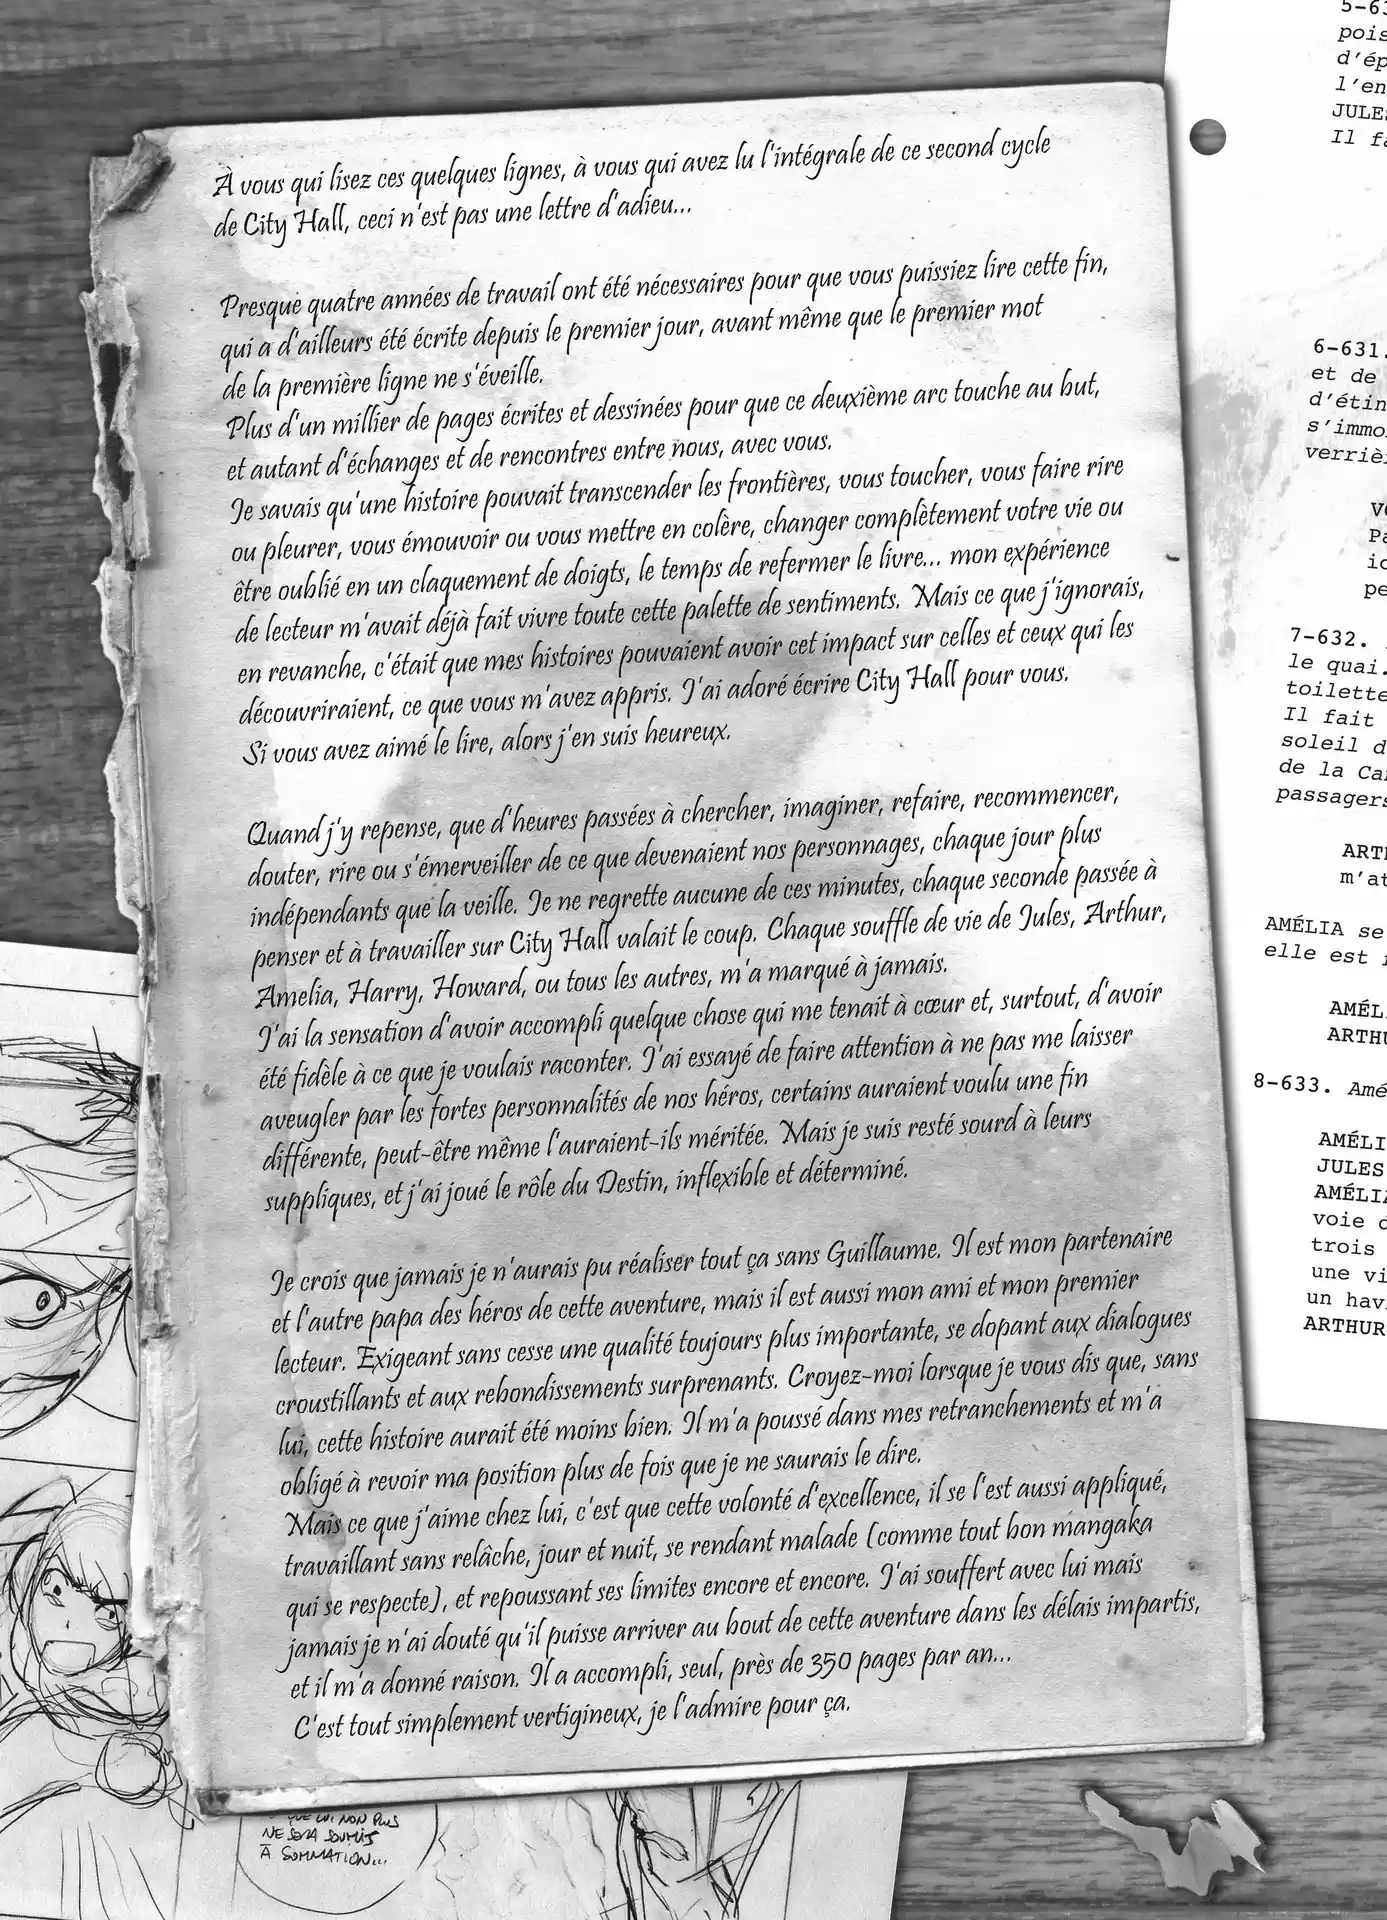 À vous qui lisez ces quelques lignes, à vous qui avez lu l'intégrale de ce second cycle
de City Hall, ceci n'est pas une lettre d'adieu...
Presque quatre années de travail ont été nécessaires pour que vous puissiez lire cette fin,
qui a d'ailleurs été écrite depuis le premier jour, avant même que le premier mot
de la première ligne ne s'éveille.
Plus d'un millier de pages écrites et dessinées pour que ce deuxième arc touche au but,
et autant d'échanges et de rencontres entre nous, avec vous.
Je savais qu'une histoire pouvait transcender les frontières, vous toucher, vous faire rire
ou pleurer, vous émouvoir ou vous mettre en colère, changer complètement votre vie ou
être oublié en un claquement de doigts, le temps de refermer le livre... mon expérience
de lecteur m'avait déjà fait vivre toute cette palette de sentiments. Mais ce que j'ignorais,
en revanche, c'était que mes histoires pouvaient avoir cet impact sur celles et ceux qui les
découvriraient, ce que vous m'avez appris. J'ai adoré écrire City Hall pour vous.
Si vous avez aimé le lire, alors j'en suis heureux.
Quand j'y repense, que d'heures passées à chercher, imaginer, refaire, recommencer,
douter, rire ou s'émerveiller de ce que devenaient nos personnages, chaque jour plus
indépendants que la veille. Je ne regrette aucune de ces minutes, chaque seconde passée à
penser et à travailler sur City Hall valait le coup. Chaque souffle de vie de Jules, Arthur,
Amelia, Harry, Howard, ou tous les autres, m'a marqué à jamais.
J'ai la sensation d'avoir accompli quelque chose qui me tenait à cœur et, surtout, d'avoir
été fidèle à ce que je voulais raconter. J'ai essayé de faire attention à ne pas me laisser
aveugler par les fortes personnalités de nos héros, certains auraient voulu une fin
différente, peut-être même l'auraient-ils méritée. Mais je suis resté sourd à leurs
suppliques, et j'ai joué le rôle du Destin, inflexible et déterminé.
Je crois que jamais je n'aurais pu réaliser tout ça sans Guillaume. Il est mon partenaire
et l'autre papa des héros de cette aventure, mais il est aussi mon ami et mon premier
lecteur. Exigeant sans cesse une qualité toujours plus importante, se dopant aux dialogues
croustillants et aux rebondissements surprenants. Croyez-moi lorsque je vous dis que, sans
lui, cette histoire aurait été moins bien. Il m'a poussé dans mes retranchements et m'a
obligé à revoir ma position plus de fois que je ne saurais le dire.
Mais ce que j'aime chez lui, c'est que cette volonté d'excellence, il se l'est aussi appliqué,
travaillant sans relâche, jour et nuit, se rendant malade (comme tout bon mangaka
qui se respecte), et repoussant ses limites encore et encore. J'ai souffert avec lui mais
jamais je n'ai douté qu'il puisse arriver au bout de cette aventure dans les délais impartis,
et il m'a donné raison. Il a accompli, seul, près de 350 pages par an...
C'est tout simplement vertigineux, je l'admire pour ça.
QUE LUI NON PLUS
NE SERA SOUMIS
À SOMMATION...
pois
d'ép
l'en
JULES
Il fa
6-631.
et de
d'étin
s'immo
verriè
7-632.
le quai.
toilette
Il fait
soleil d
de la Ca
passagers
ART
m'at
AMÉLIA se
elle est
AMÉL
ARTHU
8-633. Amé
AMÉLI
JULES
AMÉLIA
voie d
trois
une vi
un hav
ARTHUR